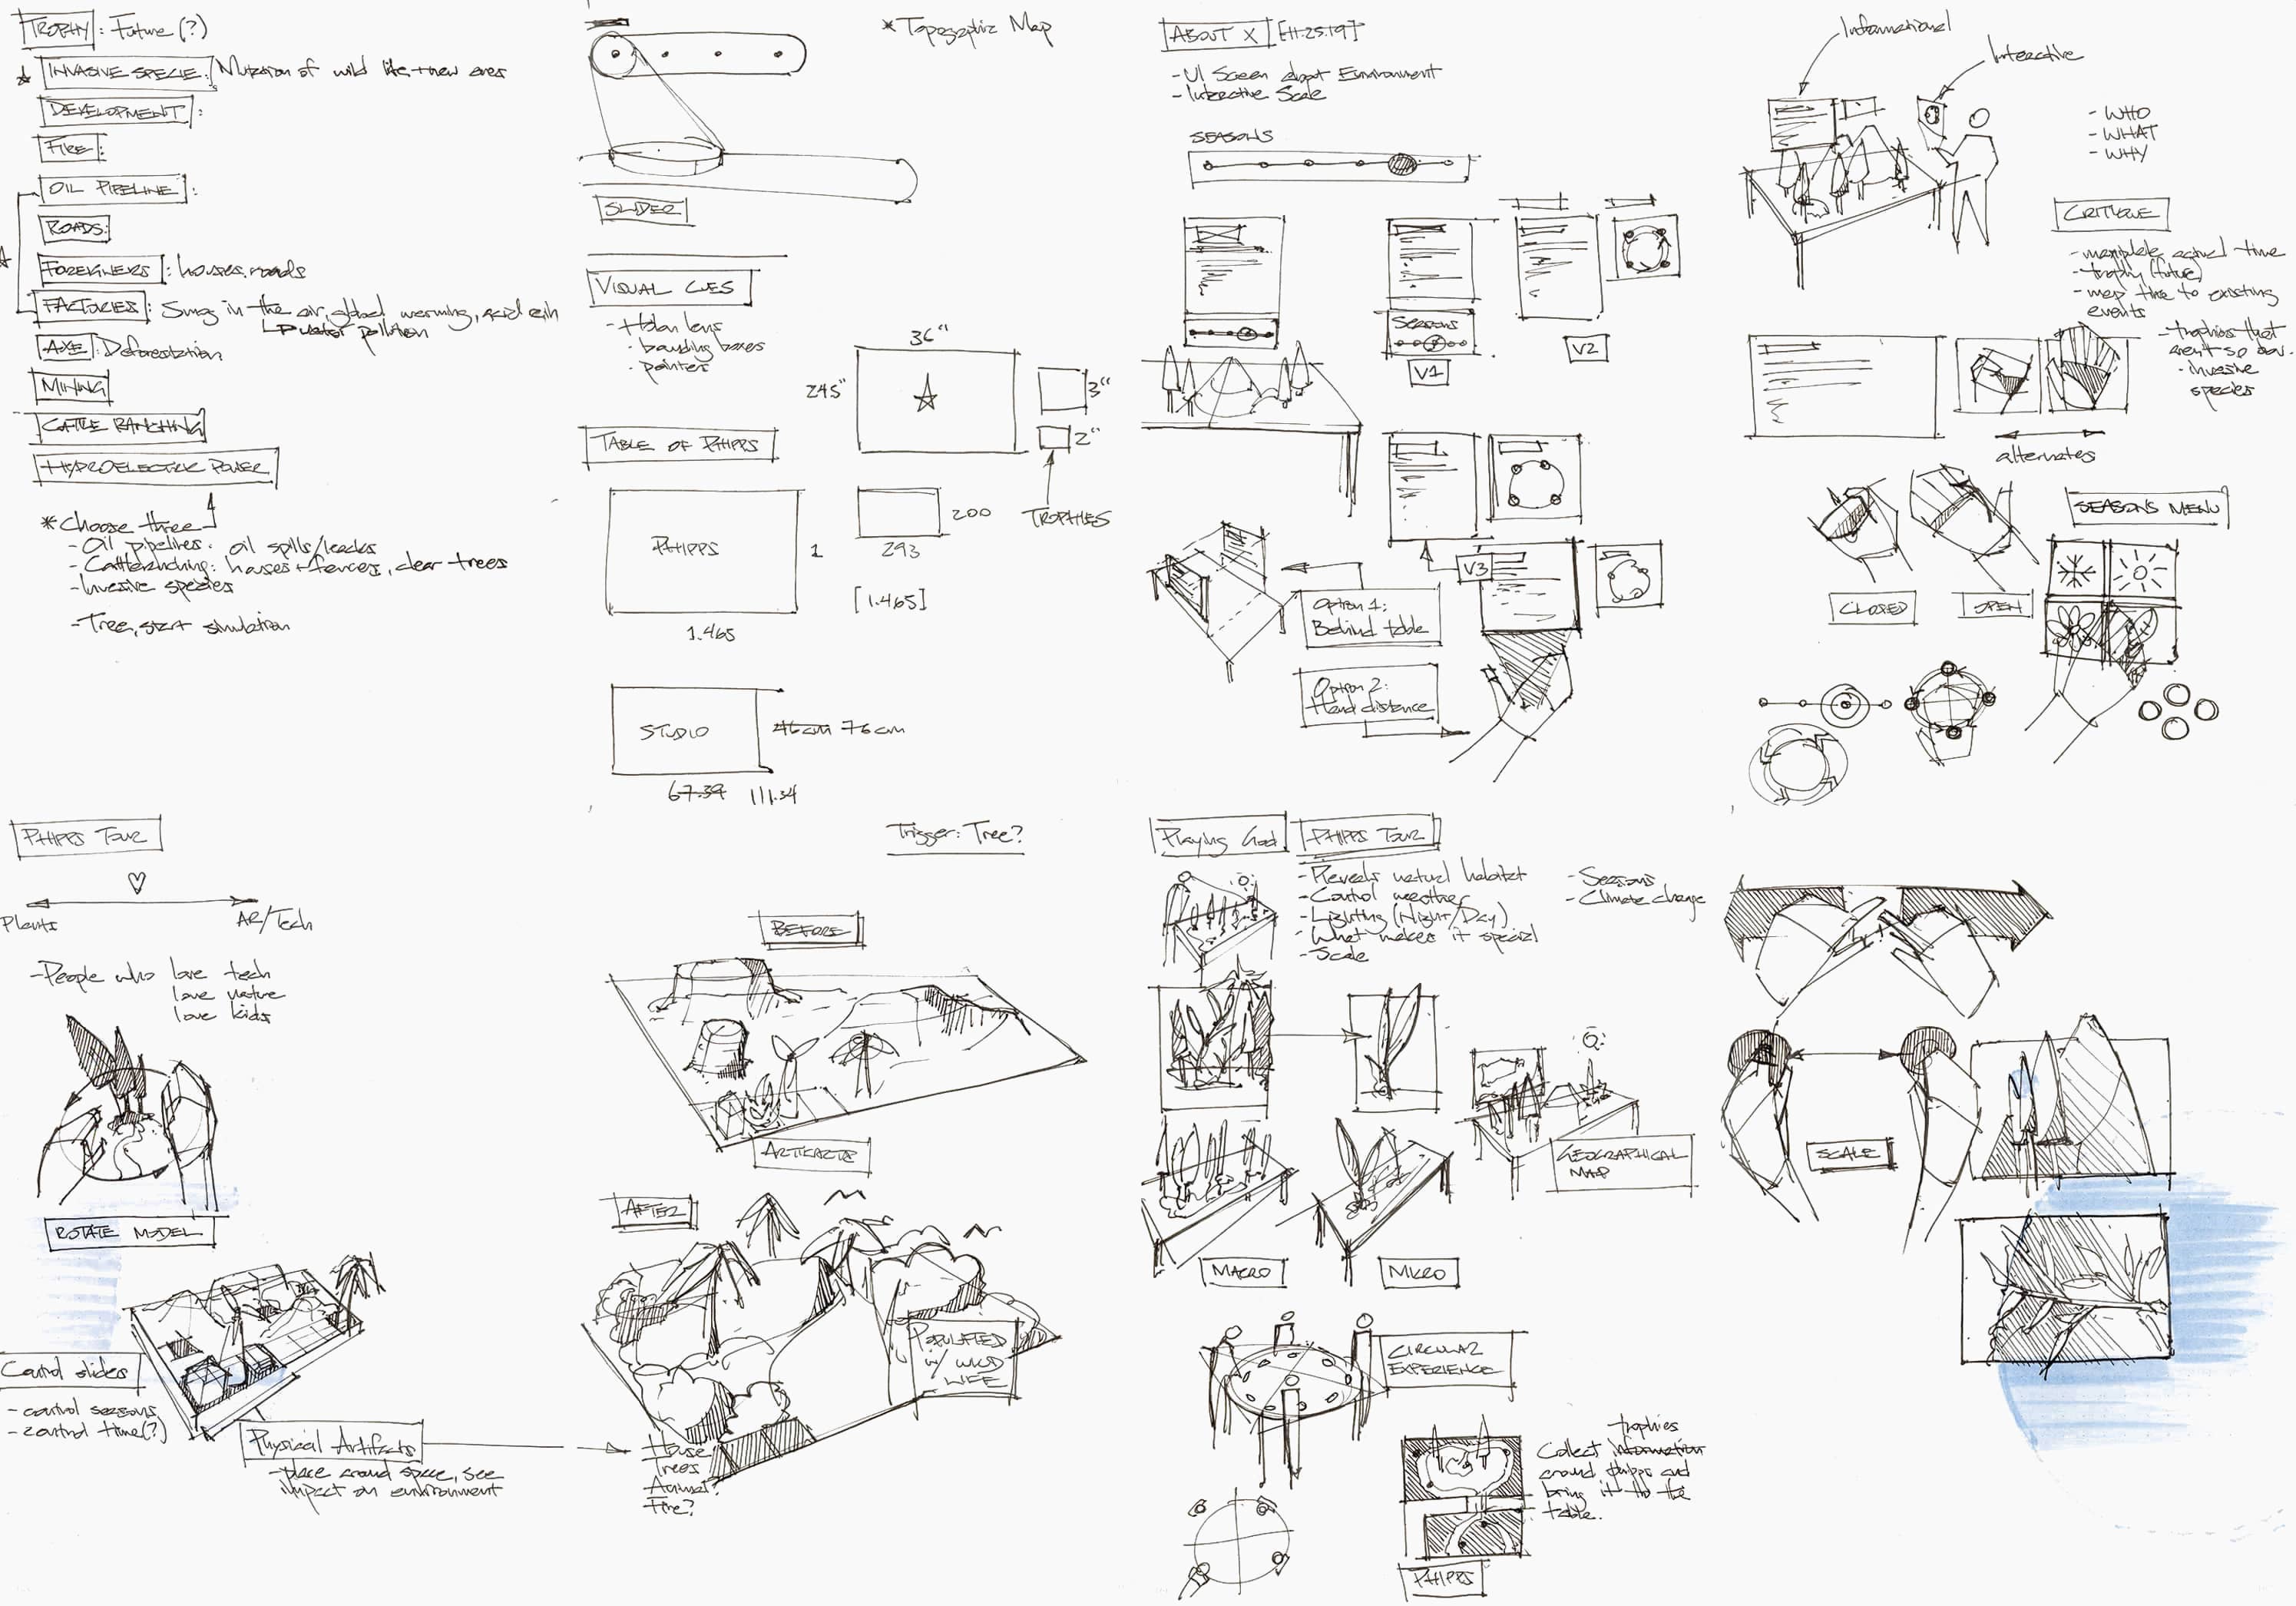 TROPHY: Future (?)
INVASIVE SPECIE: Mutation of wild life, new ones
DEVELOPMENT:
FIRE:
OIL PIPELINE:
ROADS:
FOREIGNERS: houses, roads
FACTORIES: Smog in the air, global warming, acid rain
water pollution
AXE: Deforestation
MINING
CATTLE RANCHING
HYDROELECTRIC POWER
*Choose three
- Oil pipelines: oil spills/leaks
- Cattle ranching: houses + fences, clear trees
- Invasive species
- Tree, start simulation
SLIDER
VISUAL CUES
- Holo lens
- bounding boxes
- pointers
*Topographic Map
36"
245"
3"
2"
TROPHIES
TABLE OF PHIPPS
PHIPPS
1
1.465
200
293
[1.465]
STUDIO
46cm 76cm
67.39 111.34
ABOUT X [11.25.19]
- UI Screen about Environment
- Interactive Scale
SEASONS
SEASONS
V1
V2
V3
Option 1:
Behind table
Option 2:
Hand distance
Informational
Interactive
- WHO
- WHAT
- WHY
CRITIQUE
- manipulate actual time
- trophy (future)
- map this to existing
events
- trophies that
aren't so obv.
- invasive
species
alternates
CLOSED
OPEN
SEASONS MENU
PHIPPS TOUR
Plants
AR/Tech
- People who love tech
love nature
love kids
ROTATE MODEL
Control sliders
- control seasons
- control time(?)
Physical Artifacts
- place around space, see
impact on environment
Trigger: Tree?
BEFORE
ARTIFACTS
AFTER
POPULATED
w/ WILD
LIFE
House
Trees
Animal?
Fire?
Playing God
PHIPPS TOUR
- Reveals natural habitat
- Control weather
- Lighting (Night/Day)
- What makes it special
- Scale
- Seasons
- Climate change
GEOGRAPHICAL
MAP
MACRO
MICRO
CIRCULAR
EXPERIENCE
trophies
Collect information
around phipps and
bring it to the
table.
PHIPPS
SCALE